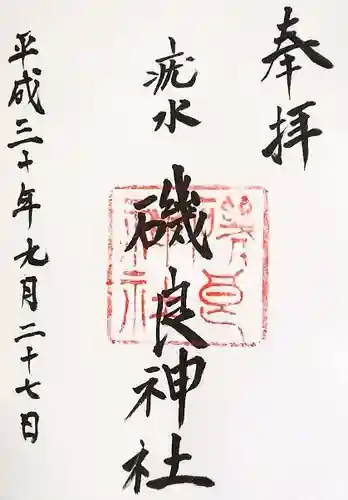 奉拝
疣水
磯良神社
平成三十年九月二十七日
磯良
神社